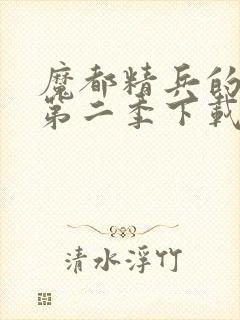 魔都精兵的
第二季下載
清水浮竹